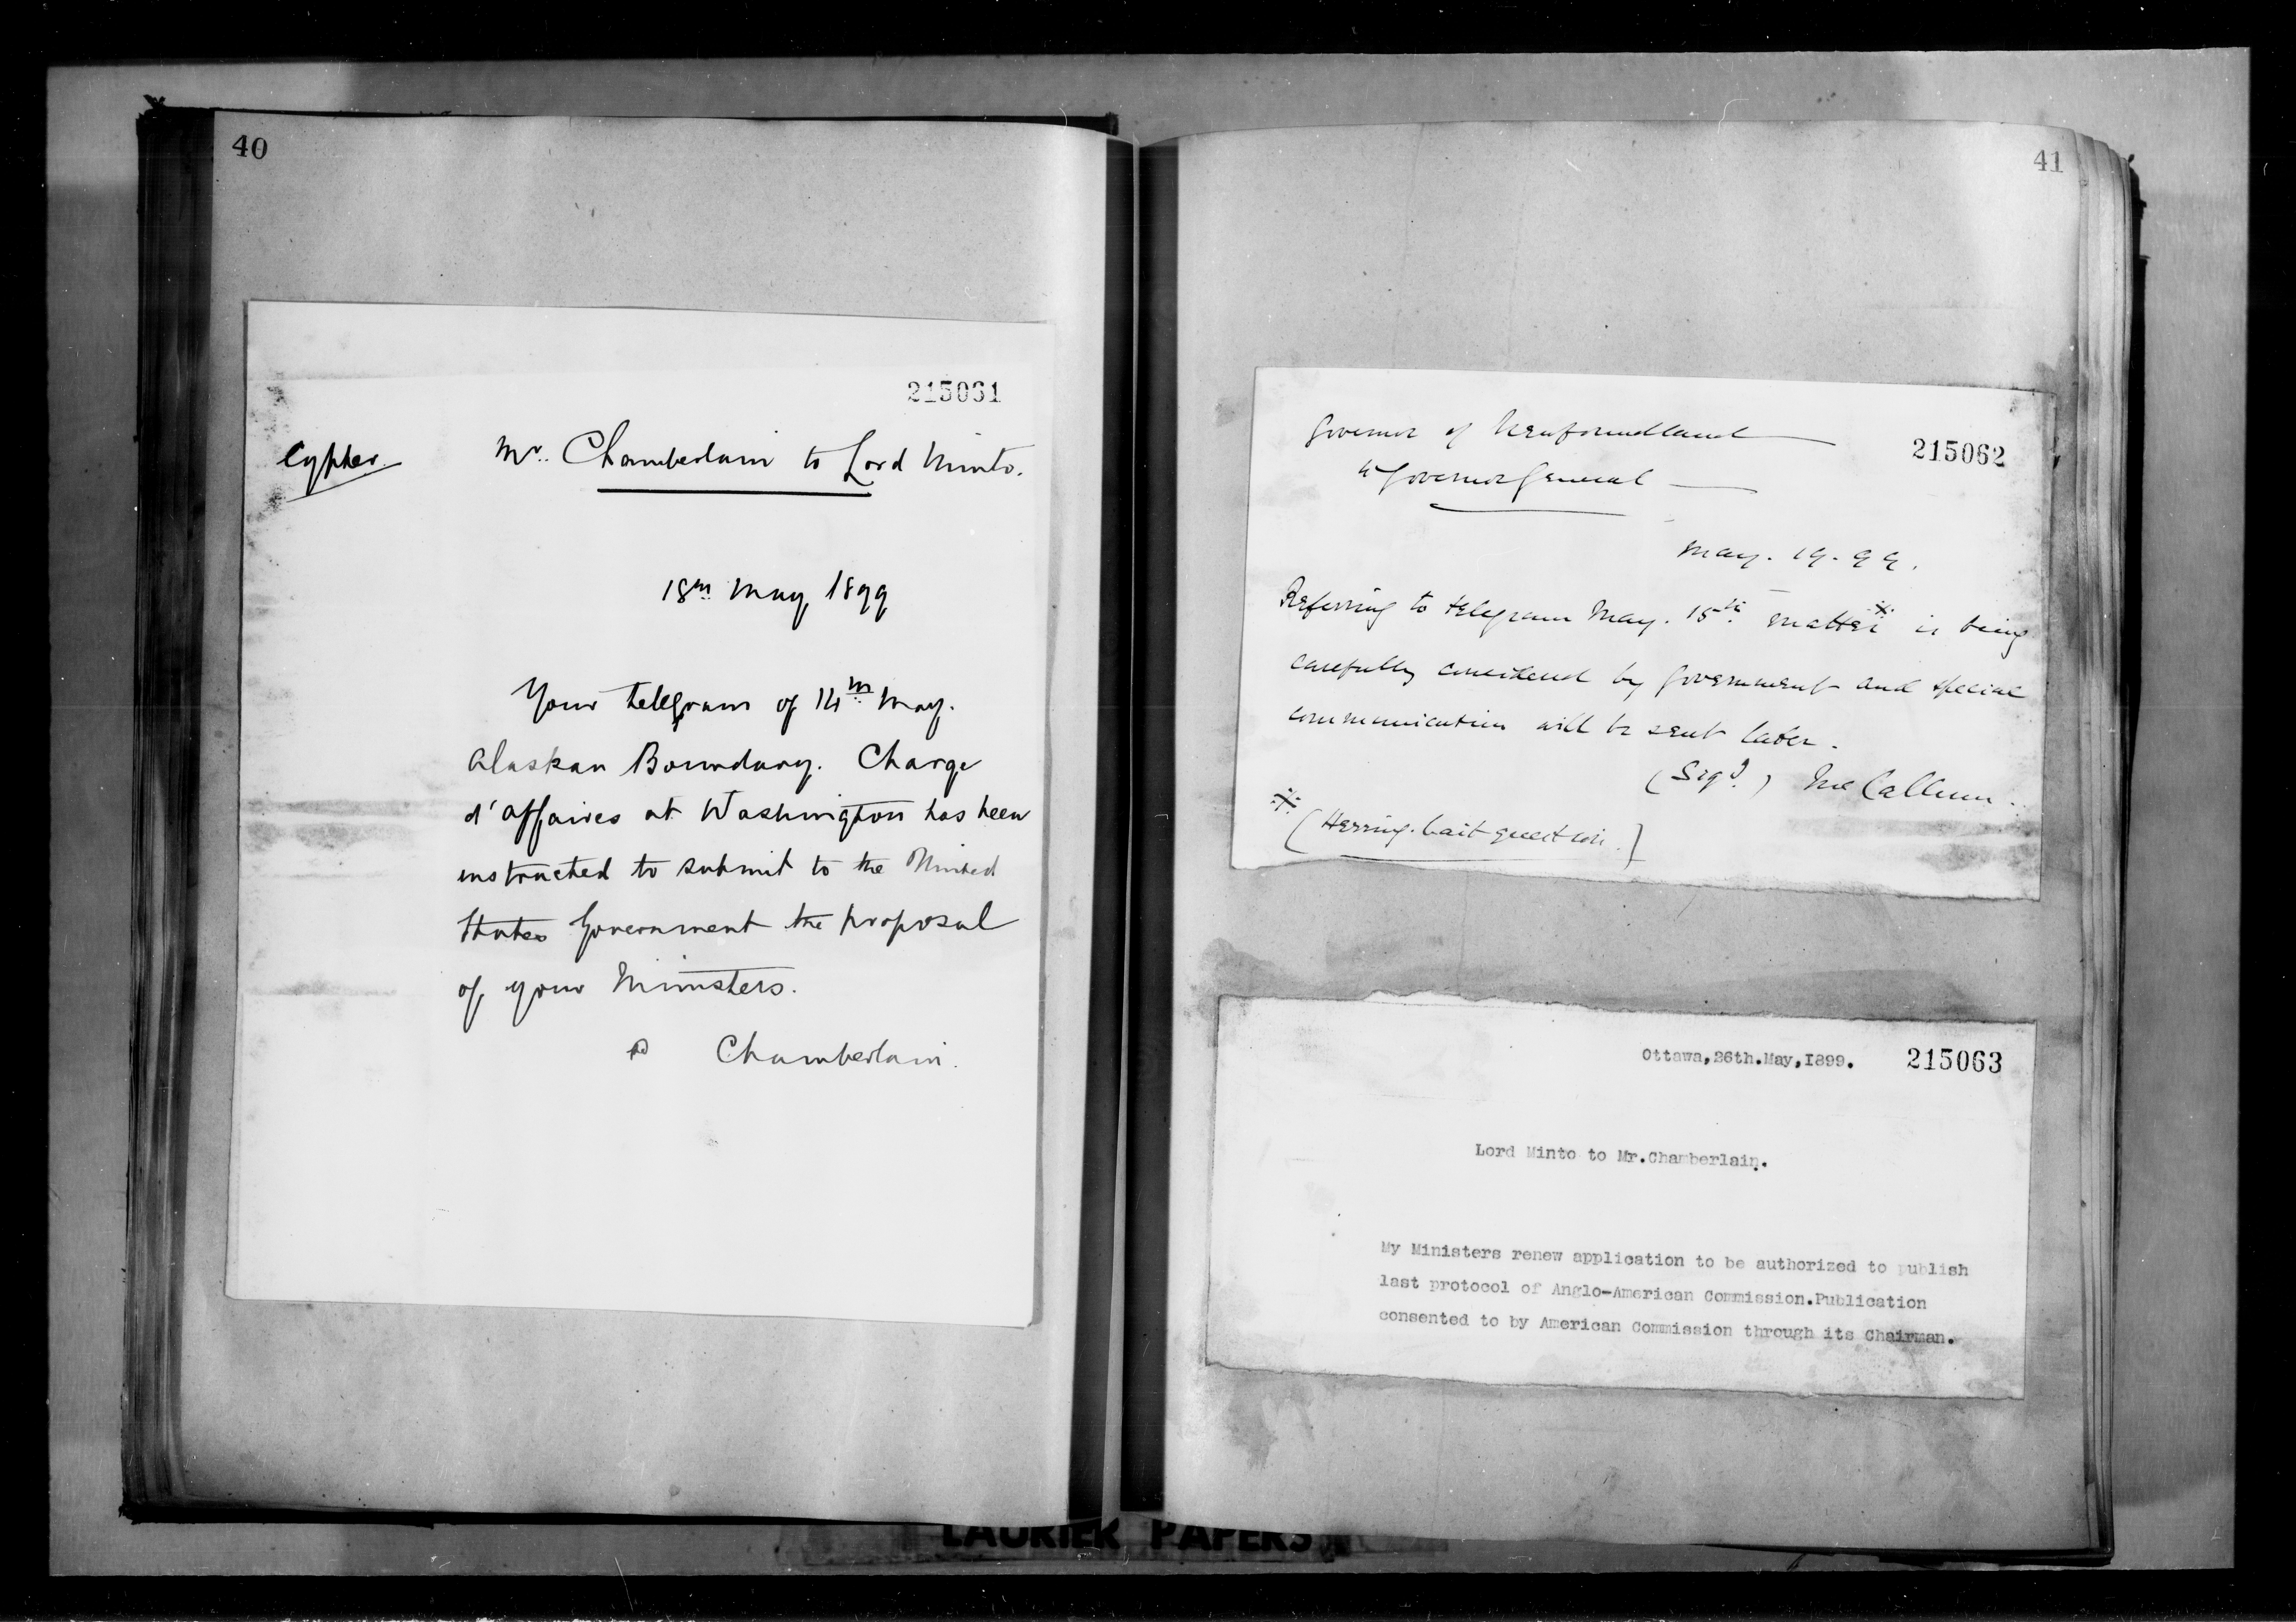 40
215061
Cypher
Mr. Chamberlain to Lord Minto.
18th May, 1899
Your telegram of 14th May.
Alaskan Boundary. Charge
d'affaires at Washington has been
instructed to submit to the United
States Government the proposal
of your Ministers.
Chamberlain.
41
Governor of Newfoundland
215062
to Governor General
May. 19. 99.
Referring to telegram May. 15th matter※ is being
carefully considered by Government and special
communication will be sent later.
(Sigd.) McCallum.
※
(Herring. bait question.]
Ottawa,26th.May,I899. 215063
Lord Minto to Mr.Chamberlain.
My Ministers renew application to be authorized to publish
last protocol of Anglo-American Commission.Publication
consented to by American Commission through its Chairman.
LAURIER PAPERS